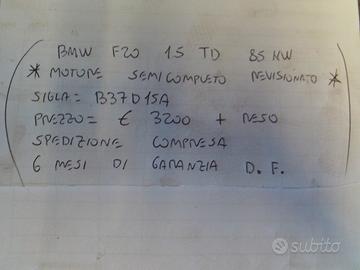 BMW F20 1.5 TD 85 KW
* MOTORE SEMICOMPLETO REVISIONATO *
SIGLA= B37D15A
PREZZO= € 3200 + RESO
SPEDIZIONE COMPRESA
6 MESI DI GARANZIA D.F.
subito